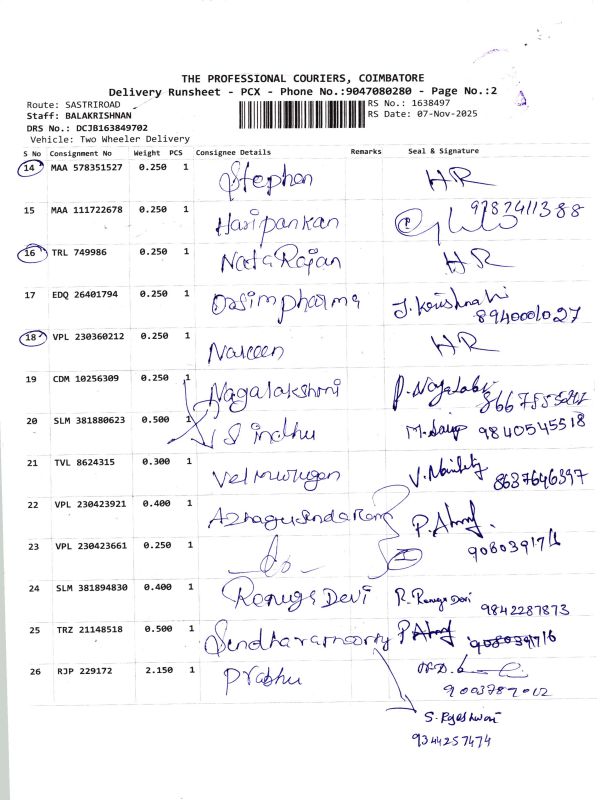 THE PROFESSIONAL COURIERS, COIMBATORE
Delivery Runsheet - PCX - Phone No.:9047080280 - Page No.:2
Route: SASTRIROAD RS No.: 1638497
Staff: BALAKRISHNAN RS Date: 07-Nov-2025
DRS No.: DCJB163849702
Vehicle: Two Wheeler Delivery
S No Consignment No Weight PCS Consignee Details Remarks Seal & Signature
14 MAA 578351527 0.250 1 Stephen HR
15 MAA 111722678 0.250 1 Haripankan 9787411388
16 TRL 749986 0.250 1 Nata Rajan HR
17 EDQ 26401794 0.250 1 J. Krishna
8940001027
18 VPL 230360212 0.250 1 Nareen HR
19 CDM 10256309 0.250 1 Nagalakshmi P. Nagalak
20 SLM 381880623 0.500 1 Sindhu 9840545518
21 TVL 8624315 0.300 1 Velmurugan 8637646397
22 VPL 230423921 0.400 1 Azhagusundaram
23 VPL 230423661 0.250 1 -do- 908039176
24 SLM 381894830 0.400 1 Renuga Devi R. Renuga Devi
9842287873
25 TRZ 21148518 0.500 1 908039176
26 RJP 229172 2.150 1 Prabhu
9003787012
S. Rajeshwari
9344257474